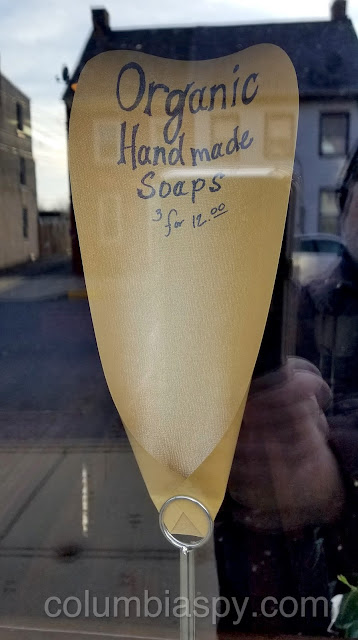 Organic
Handmade
Soaps
3 for 12.00
columbiaspy.com